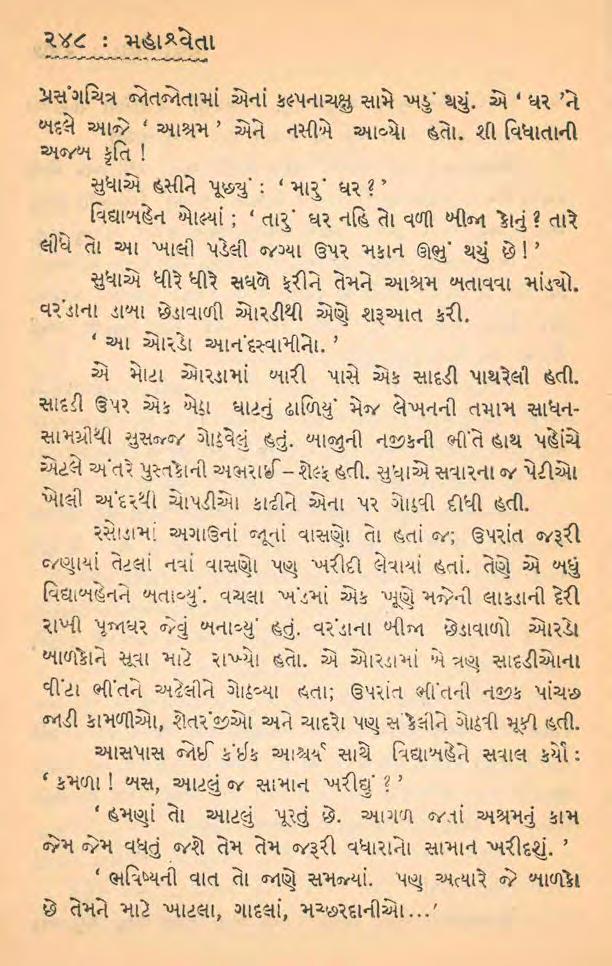 ૨૪૮ : મહાશ્વેતા
પ્રસંગચિત્ર જોતજોતામાં એનાં કલ્પનાચક્ષુ સામે ખડું થયું. એ ‘ ઘર ’ને
બદલે આજે ‘ આશ્રમ ’ એને નસીબે આવ્યો હતો. શી વિધાતાની
અજબ કૃતિ !
સુધાએ હસીને પૂછ્યું : ‘ મારું ઘર ? ’
વિદ્યાબહેન બોલ્યાં ; ‘ તારું ઘર નહિ તો વળી બીજા કોનું ? તારે
લીધે તો આ ખાલી પડેલી જગ્યા ઉપર મકાન ઊભું થયું છે ! ’
સુધાએ ધીરે ધીરે સઘળે ફરીને તેમને આશ્રમ બતાવવા માંડ્યો.
વરંડાના ડાબા છેડાવાળી ઓરડીથી એણે શરૂઆત કરી.
‘ આ ઓરડો આનંદસ્વામીનો. ’
એ મોટા ઓરડામાં બારી પાસે એક સાદડી પાથરેલી હતી.
સાદડી ઉપર એક બેઠા ઘાટનું ઢાળિયું મેજ લેખનની તમામ સાધન-
સામગ્રીથી સુસજ્જ ગોઠવેલું હતું. બાજુની નજીકની ભીંતે હાથ પહોંચે
એટલે અંતરે પુસ્તકોની અભરાઈ – શેલ્ફ હતી. સુધાએ સવારના જ પેટીઓ
ખોલી અંદરથી ચોપડીઓ કાઢીને એના પર ગોઠવી દીધી હતી.
રસોડામાં અગાઉનાં જૂનાં વાસણો તો હતાં જ; ઉપરાંત જરૂરી
જણાયાં તેટલાં નવાં વાસણો પણ ખરીદી લેવાયાં હતાં. તેણે એ બધું
વિદ્યાબહેનને બતાવ્યું. વચલા ખંડમાં એક ખૂણે મજેની લાકડાની દેરી
રાખી પૂજાઘર જેવું બનાવ્યું હતું. વરંડાના બીજા છેડાવાળો ઓરડો
બાળકોને સૂવા માટે રાખ્યો હતો. એ ઓરડામાં બે ત્રણ સાદડીઓના
વીંટા ભીંતને અઢેલીને ગોઠવ્યા હતા; ઉપરાંત ભીંતની નજીક પાંચછ
જાડી કામળીઓ, શેતરંજીઓ અને ચાદરો પણ સંકેલીને ગોઠવી મૂકી હતી.
આસપાસ જોઈ કંઈક આશ્ચર્ય સાથે વિદ્યાબહેને સવાલ કર્યો :
‘ કમળા ! બસ, આટલું જ સામાન ખરીદ્યું ? ’
‘ હમણાં તો આટલું પૂરતું છે. આગળ જતાં અશ્રમનું કામ
જેમ જેમ વધતું જશે તેમ તેમ જરૂરી વધારાનો સામાન ખરીદશું. ’
‘ ભવિષ્યની વાત તો જાણે સમજ્યાં. પણ અત્યારે જે બાળકો
છે તેમને માટે ખાટલા, ગાદલાં, મચ્છરદાનીઓ...’